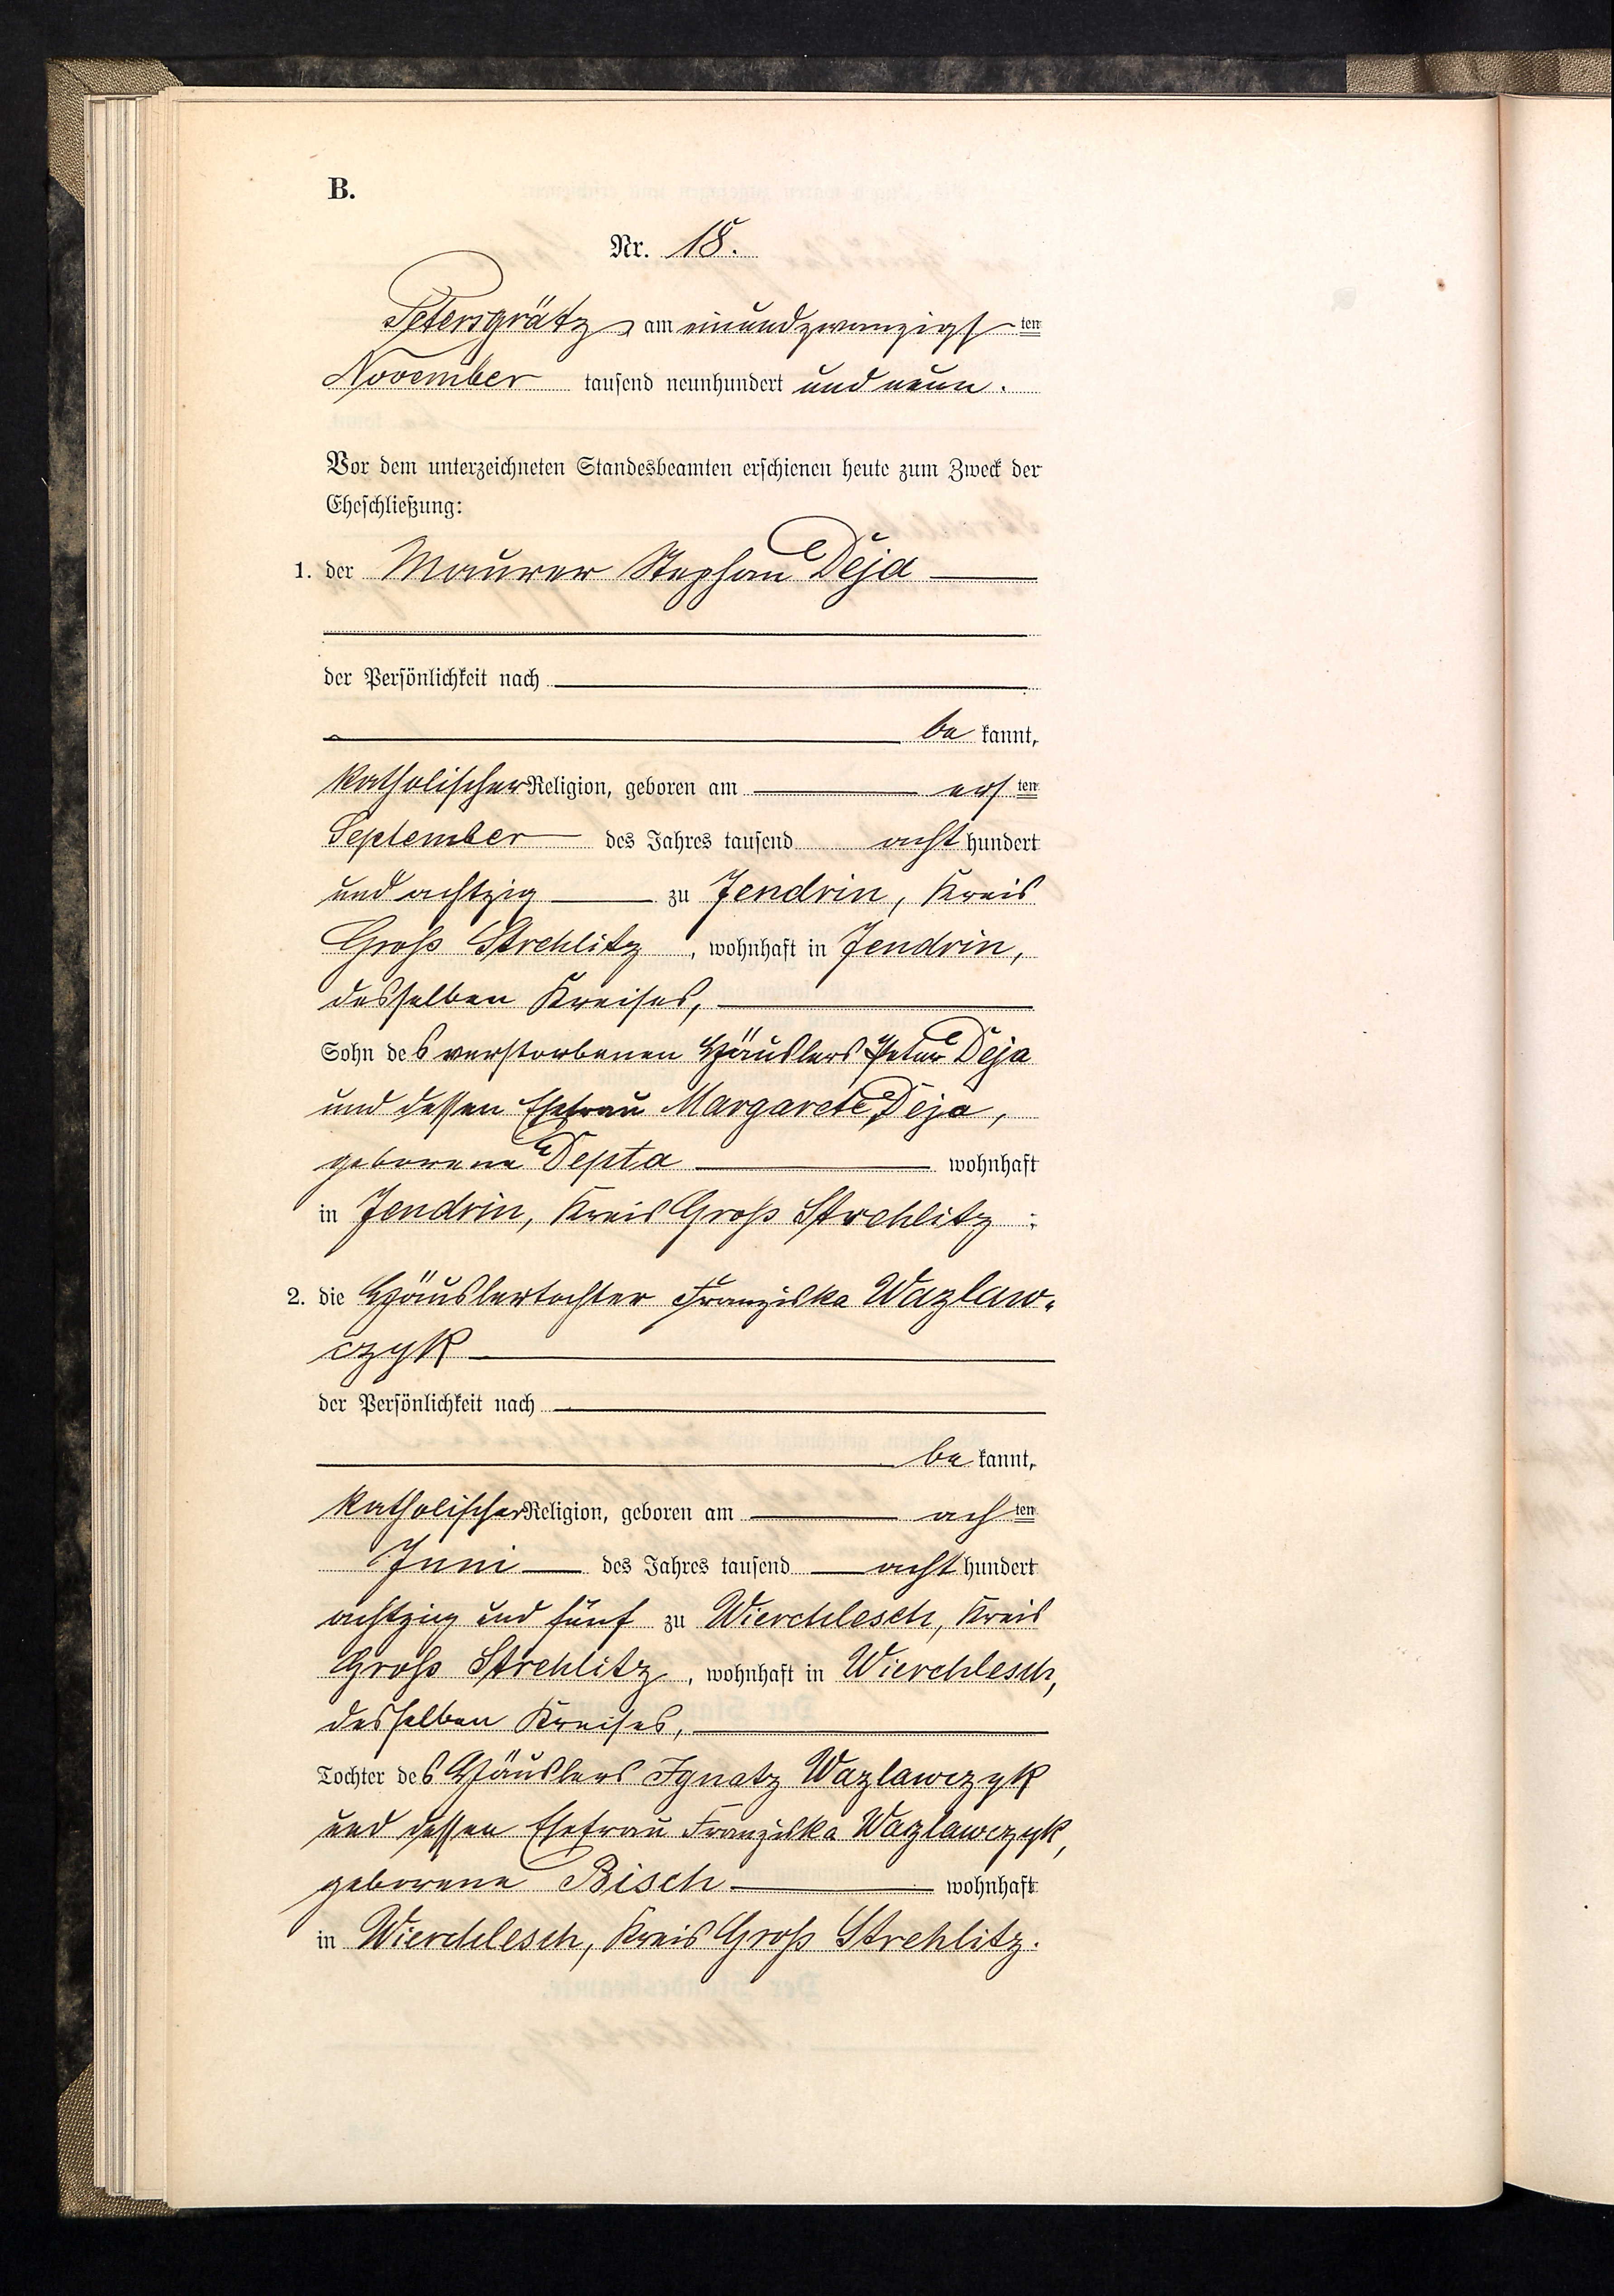 B.
Nr. 18.
Petersgrätz, am einundzwanzigsten
November tausend neunhundert und neun.
Vor dem unterzeichneten Standesbeamten erschienen heute zum Zweck der
Eheschließung:
1. der Maurer Stephan Deja
der Persönlichkeit nach
be kannt,
katholischer Religion, geboren am ersten
September des Jahres tausend acht hundert
und achtzig zu Jendrin, Kreis
Groß Strehlitz, wohnhaft in Jendrin,
desselben Kreises,
Sohn des verstorbenen Häuslers Peter Deja
und dessen Ehefrau Margarete Deja,
geborene Depta wohnhaft
in Jendrin, Kreis Groß Strehlitz;
2. die Häuslertochter Franziska Wazlaw-
czyk
der Persönlichkeit nach
be kannt,
katholischer Religion, geboren am achten
Juni des Jahres tausend acht hundert
achtzig und fünf zu Wierchlesch, Kreis
Groß Strehlitz, wohnhaft in Wierchlesch,
desselben Kreises,
Tochter des Häuslers Ignatz Wazlawczyk
und dessen Ehefrau Franziska Wazlawczyk,
geborene Bisch wohnhaft
in Wierchlesch, Kreis Groß Strehlitz.